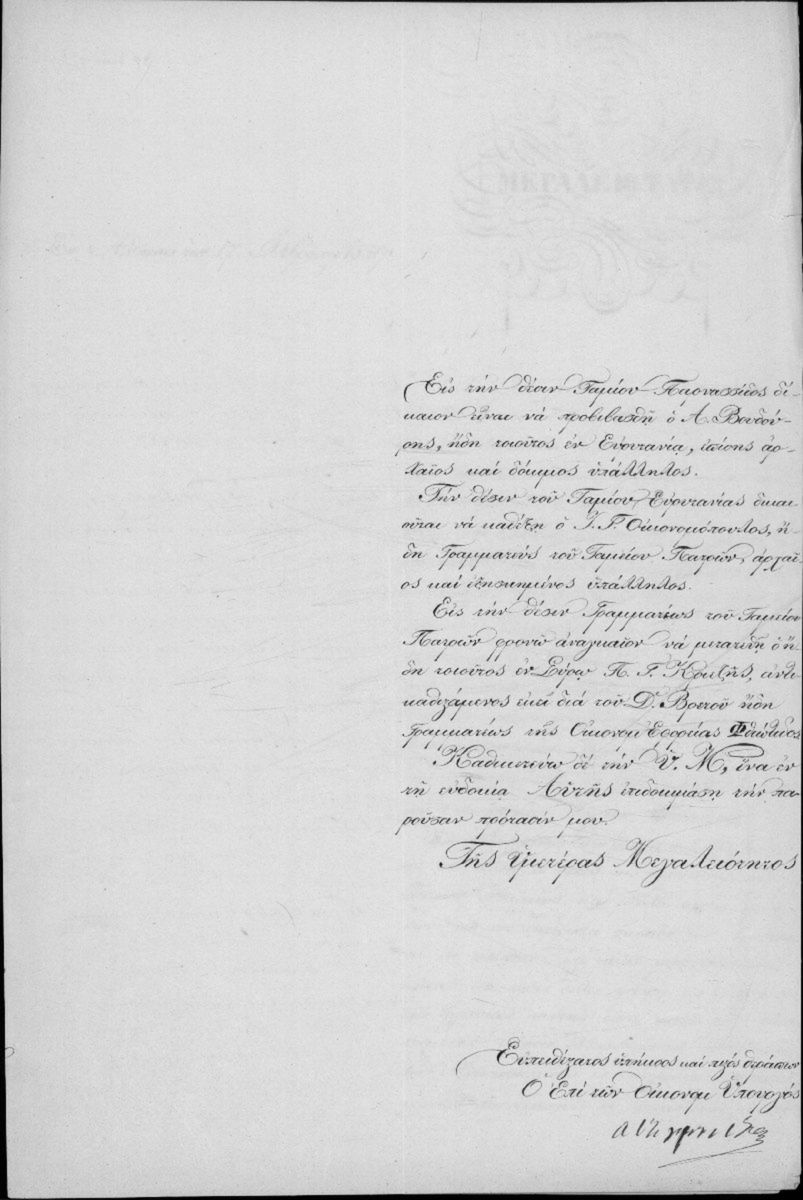 Εἰς τὴν θέσιν Ταμίου Παρνασσίδος δί-
καιον εἶναι νά προβιβασθῇ ὁ Α. Βουδού-
ρης, ἤδη τοιοῦτος ἐν Εὐρυτανίᾳ, ἐπίσης ἀρ-
χαῖος καί δόκιμος ὑπάλληλος.
Τήν θέσιν τοῦ Ταμίου Εὐρυτανίας δικαι
οῦται νά καθέξῃ ὁ Ι. Γ. Οἰκονομόπουλος, ἤ-
δη Γραμματεύς τοῦ Ταμείου Πατρῶν, ἀρχαῖ-
ος καί ἐξησκημένος ὑπάλληλος.
Εἰς τήν θέσιν Γραμματέως τοῦ Ταμείου
Πατρῶν φρονῶ ἀναγκαῖον νά μετατεθῇ ὁ ἤ-
δη τοιοῦτος ἐν Σύρῳ Π. Γ. ἀντι
καθιστάμενος ἐκεῖ διά τοῦ Δ. Βρετοῦ ἤδη
Γραμματέως τῆς Οἰκονομ Ἐφορίας Φθιώτιδος
Καθικετεύω δέ τήν Ὑ. Μ, ἵνα ἐν
τῇ εὐδοκίᾳ Αὑτῆς ἐπιδοκιμάσῃ τήν πα-
ροῦσαν πρότασίν μου.
Τῆς Ὑμετέρας Μεγαλειότητος
Εὐπειθέστατος ὑπήκοος καί πιστός θεράπων
Ὁ Ἐπί τῶν Οἰκονομ Ὑπουργός